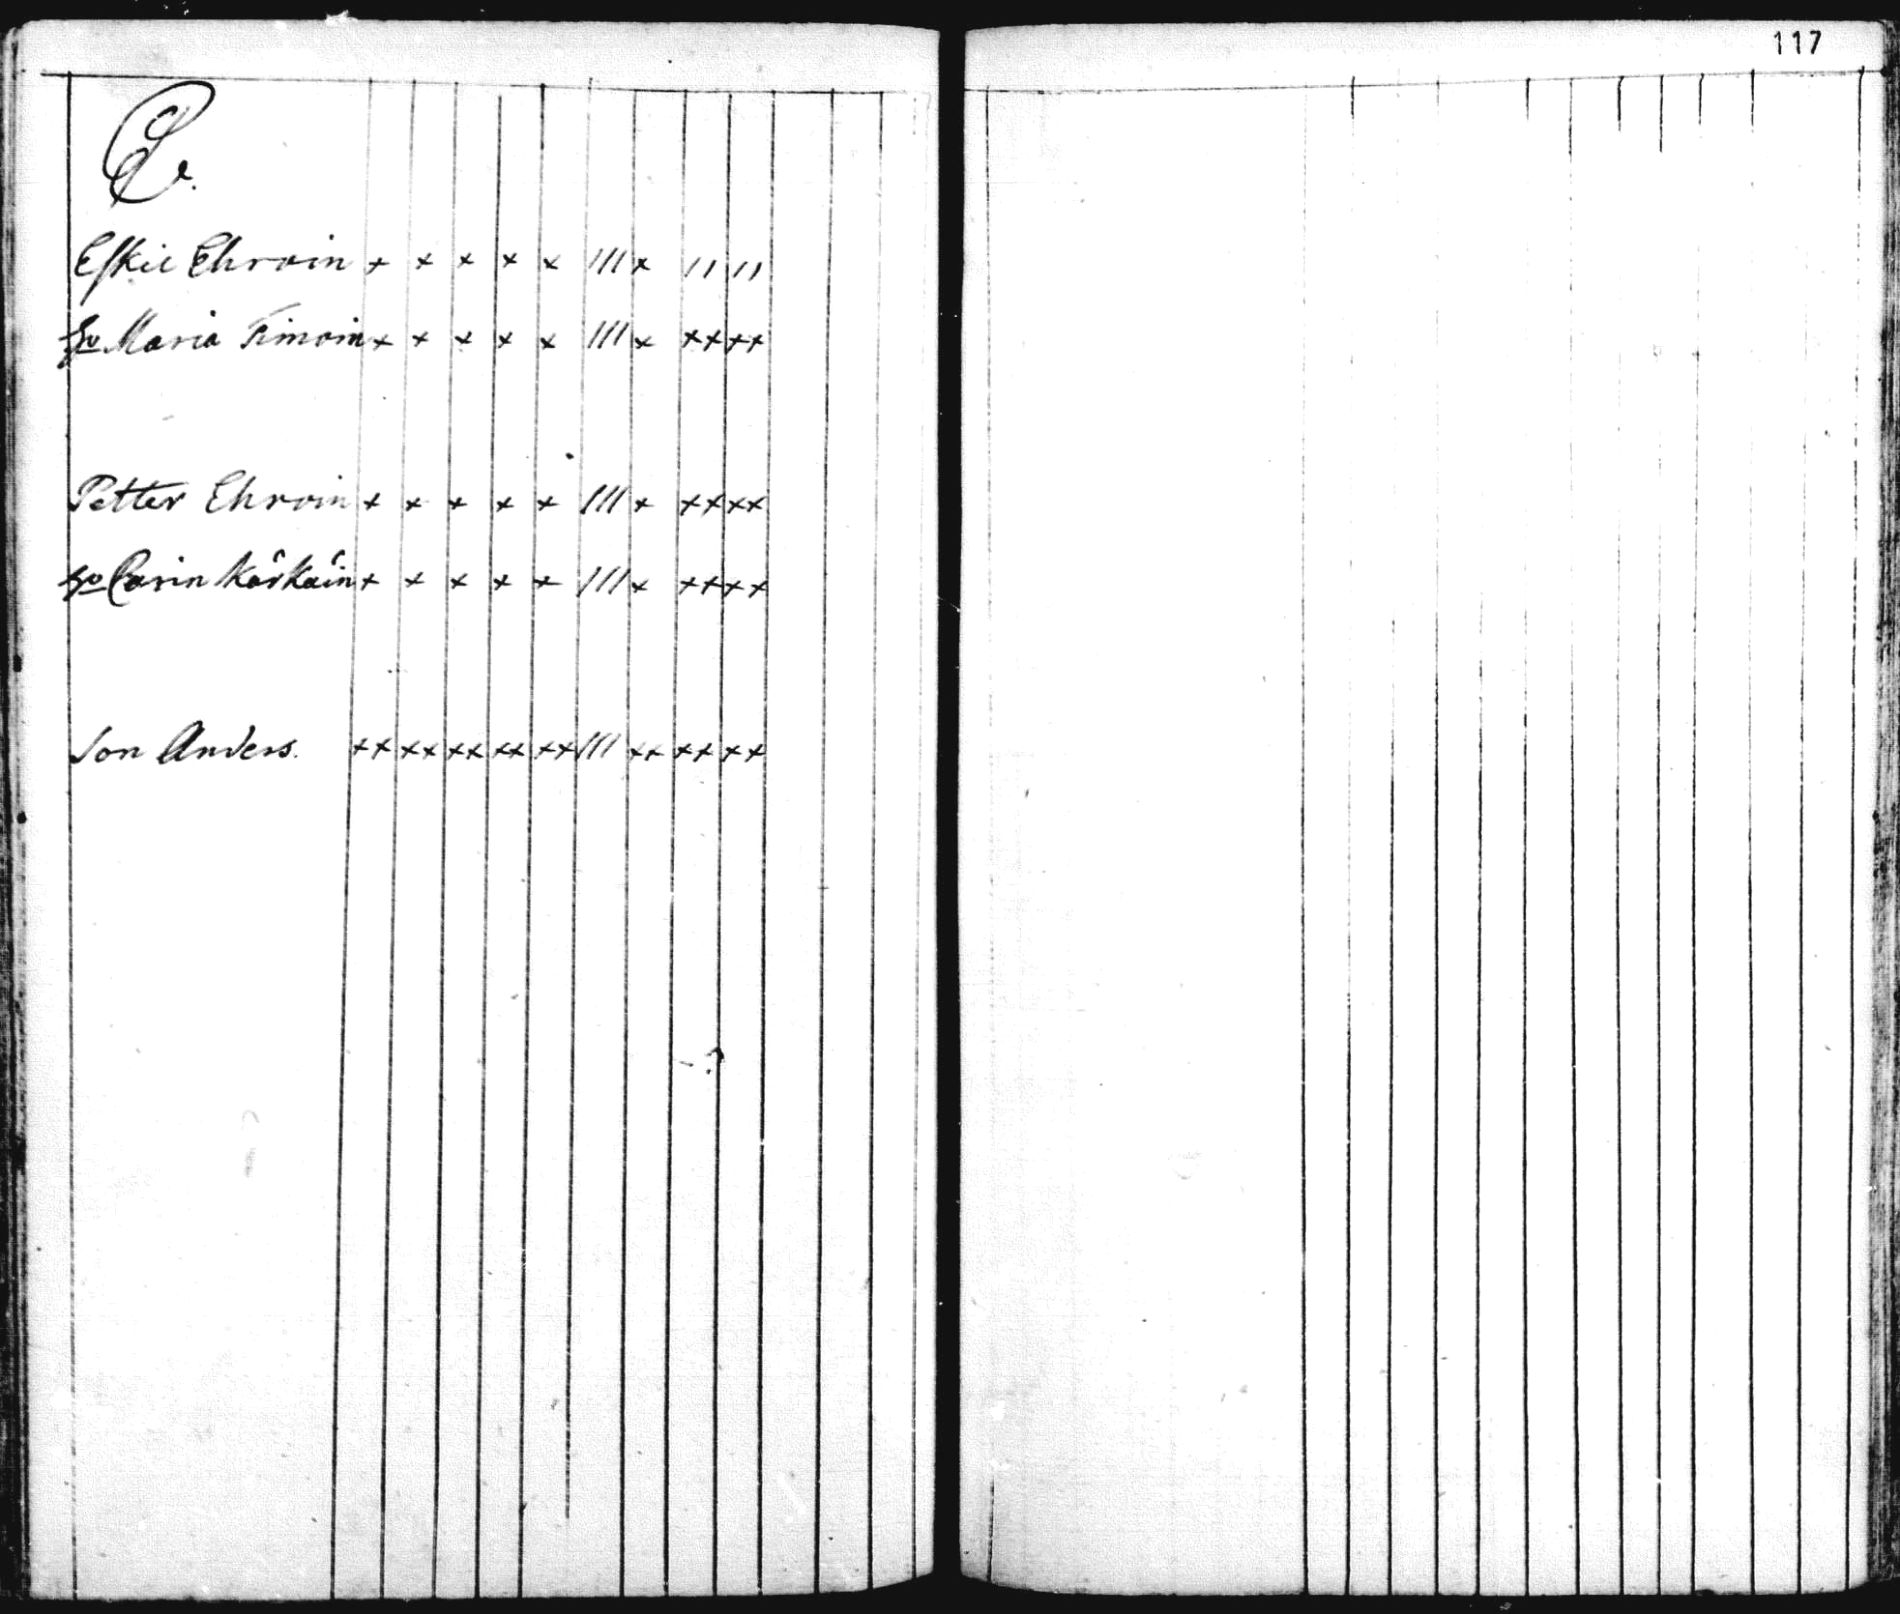 117
E.
Eskil Ehroin + + + + + /// + // //
hu Maria Timoin + + + + + /// + ++ ++
Petter Ehroin + + + + + /// + ++ ++
hu Carin Kärkäin + + + + + /// + ++ ++
Son Anders. ++ ++ ++ ++ ++ /// ++ ++ ++